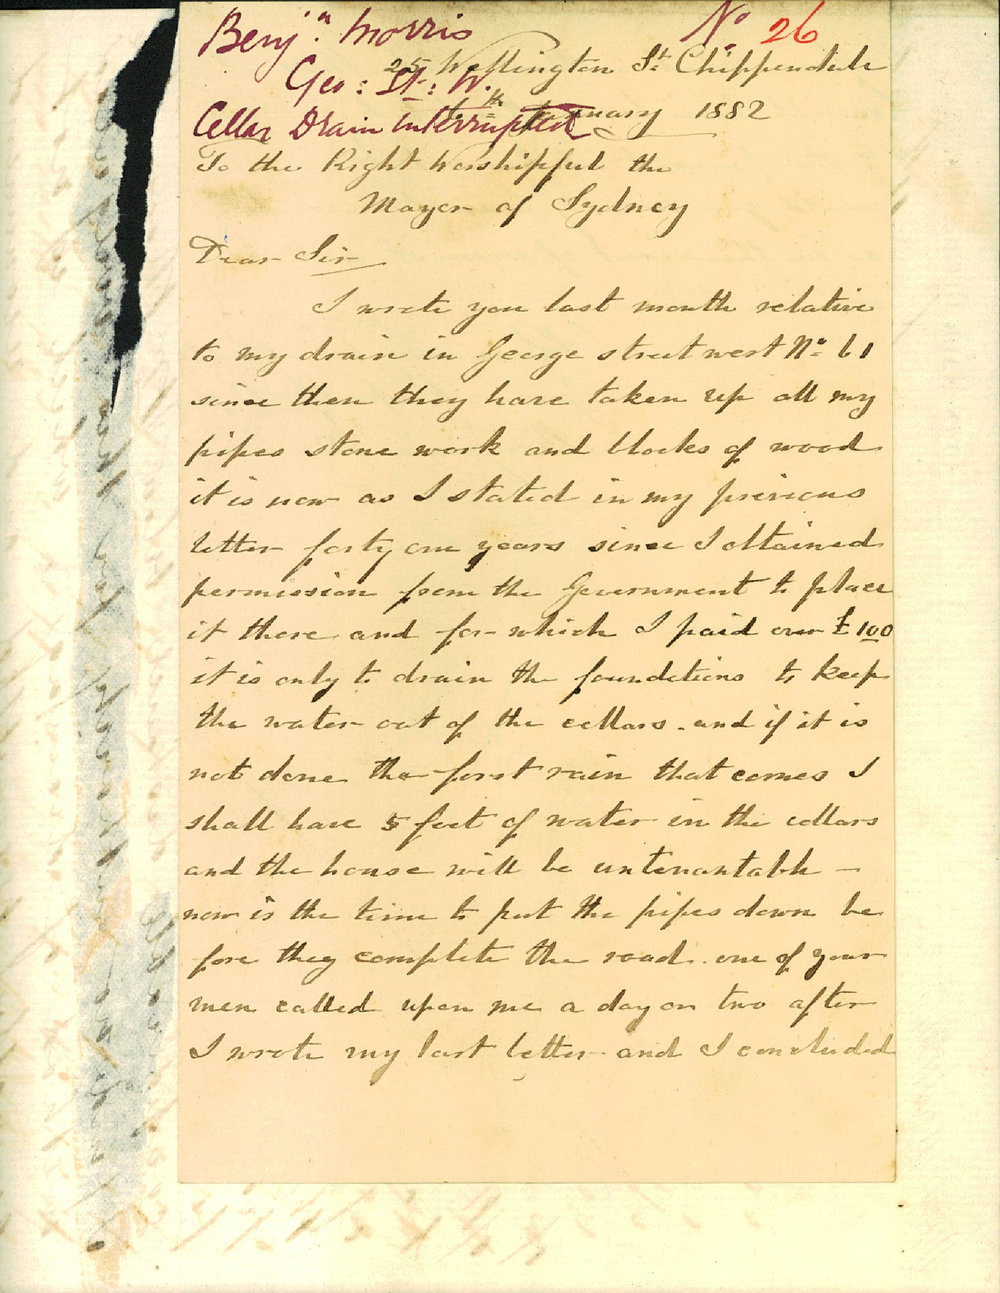 Benjn. Morris
No 26
25 Wellington St Chippendale
Geo: St: W.
January 1882
Cellar Drain interrupted
To the Right Worshipful the
Mayor of Sydney
Dear Sir
I wrote you last month relative
to my drain in George street west No 61
since then they have taken up all my
pipes stone work and blocks of wood
it is now as I stated in my previous
letter forty one years since I obtained
permission from the Government to place
it there and for which I paid over £100
it is only to drain the foundations to keep
the water out of the cellars. and if it is
not done the first rain that comes I
shall have 5 feet of water in the cellars
and the house will be untenantable —
now is the time to put the pipes down be
fore they complete the road. one of your
men called upon me a day or two after
I wrote my last letter and I concluded